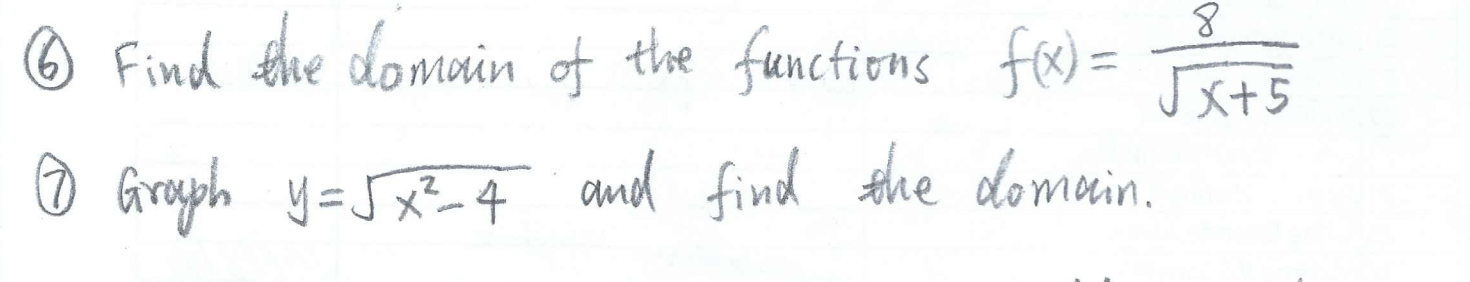 ⑥ Find the domain of the functions f(x) = 8/√(x+5)
⑦ Graph y = √(x²-4) and find the domain.